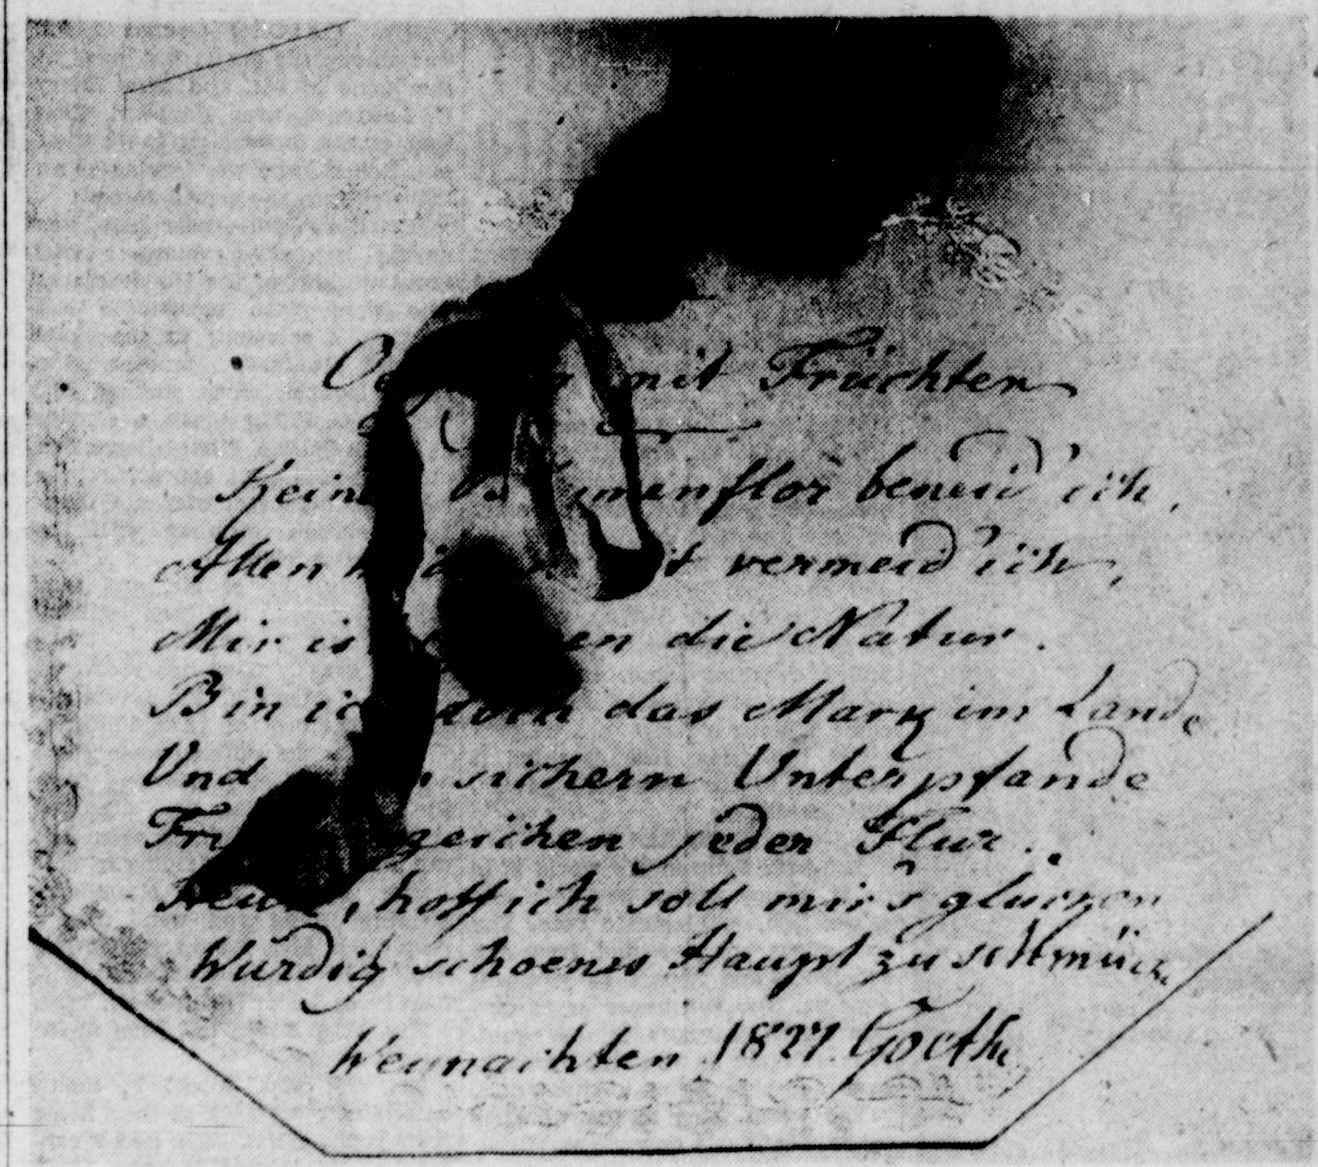 mit Früchten
Keine beneid' ich,
Allen vermeid' ich,
Mir is die Natur.
Bin ich das Mark im Lande
Und sichern Unterpfande
zeichen jeder Flur.
hoff ich soll mir's glucken
Wurdig schoenes Haupt zu schmück
Weynachten 1827 Goethe